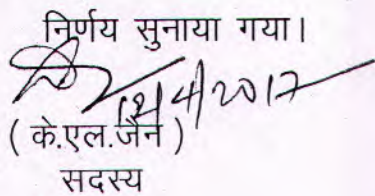 निर्णय सुनाया गया।
12/4/2017
( के.एल.जैन )
सदस्य